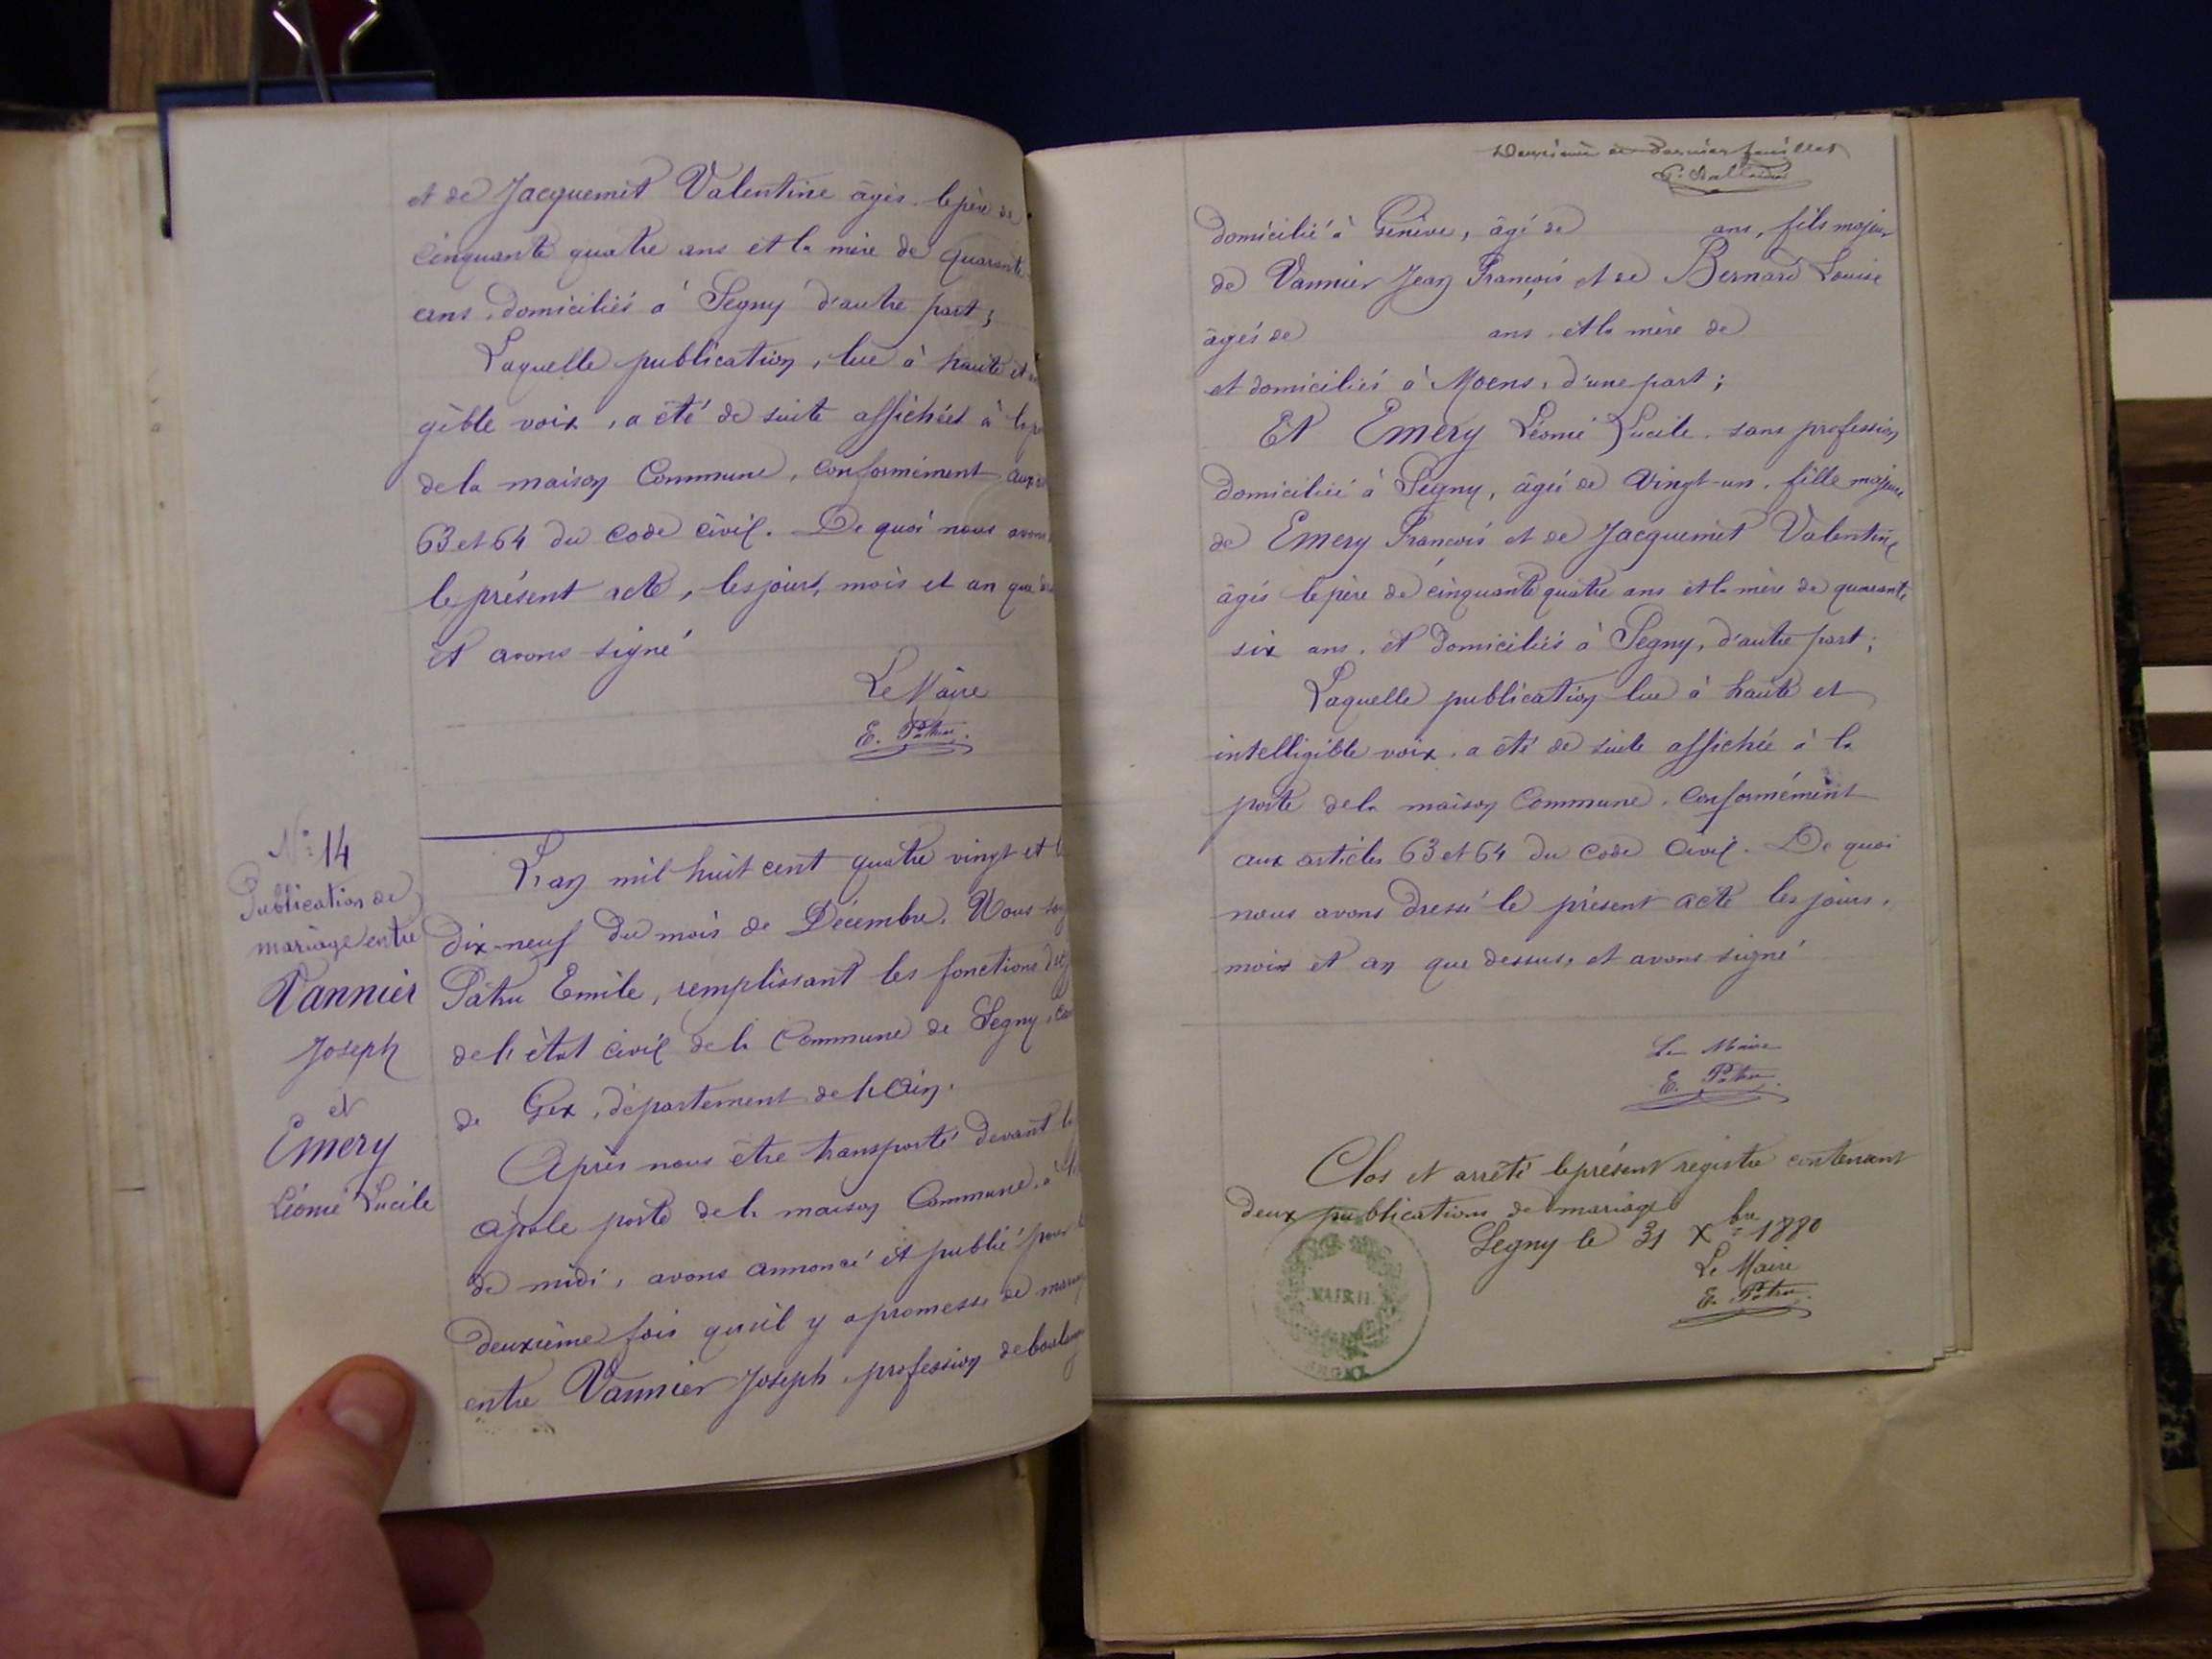 et de Jacquemet Valentine âgés le père de
cinquante quatre ans et la mère de quarante
ans domiciliés à Segny d'autre part;
Laquelle publication, lue à haute et
gible voix, a été de suite affichée à la
de la maison Commune, conformément aux
63 et 64 du code civil. De quoi nous avons
le présent acte, les jours, mois et an que
et avons signé
Le Maire
E. Patru
N° 14
Publication de
mariage entre
Vannier
Joseph
et
Emery
Léonie Lucile
L'an mil huit cent quatre vingt et
dix-neuf du mois de Décembre. Nous
Patru Emile, remplissant les fonctions
de l'état civil de la Commune de Segny,
de Gex, département de l'Ain.
Après nous être transporté devant la
pale porte de la maison Commune, à
de midi, avons annoncé et publié pour
deuxième fois qu'il y a promesse de
entre Vannier Joseph, profession de
et dernier feuillet
domicilié à Genève, âgé de ans, fils majeur
de Vannier Jean François et de Bernard Louise
âgés de ans et la mère de
et domiciliés à Moens, d'une part;
Et Emery Léonie Lucile, sans profession
domiciliée à Segny, âgée de vingt-un, fille majeure
de Emery François et de Jacquemet Valentine
âgés le père de cinquante quatre ans et la mère de quarante
six ans, et domiciliés à Segny, d'autre part;
Laquelle publication lue à haute et
intelligible voix, a été de suite affichée à la
porte de la maison Commune, conformément
aux articles 63 et 64 du code civil. De quoi
nous avons dressé le présent acte les jours,
mois et an que dessus, et avons signé
Le Maire
E. Patru
Clos et arrêté le présent registre contenant
deux publications de mariage
Segny le 31 Xbre 1880
Le Maire
E. Patru
MAIRIE
SEGNY